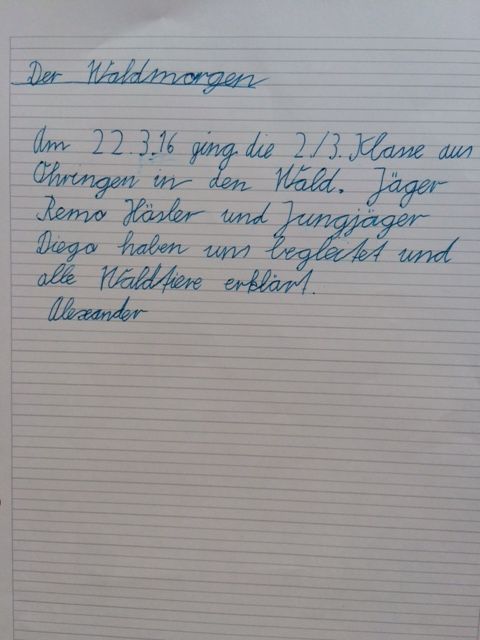 Der Waldmorgen
Am 22.3.16 ging die 2./3. Klasse aus
Ohringen in den Wald. Jäger
Remo Häsler und Jungjäger
Diego haben uns begleitet und
alle Waldtiere erklärt.
Alexander